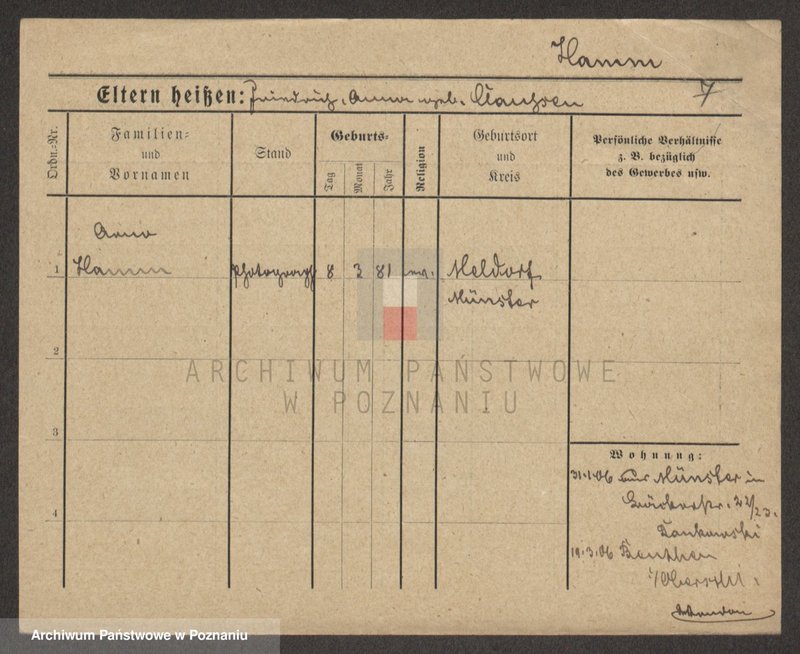 Hamm
Eltern heißen: Friedrich, Anna geb. Clauhsen
7
Ordn.-Nr.
Familien- und Vornamen
Stand
Geburts-
Tag
Monat
Jahr
Religion
Geburtsort und Kreis
Persönliche Verhältnisse z. B. bezüglich des Gewerbes usw.
Arno
1 Hamm Photograph 8 3 81 ev. Meldorf
Münster
2
3
4
ARCHIWUM PAŃSTWOWE
W POZNANIU
Wohnung:
31.1.06 aus Münster in
Bäckerstr. 22/23.
Dankowski
19.3.06 Beuthen
i/Oberschl.
Archiwum Państwowe w Poznaniu